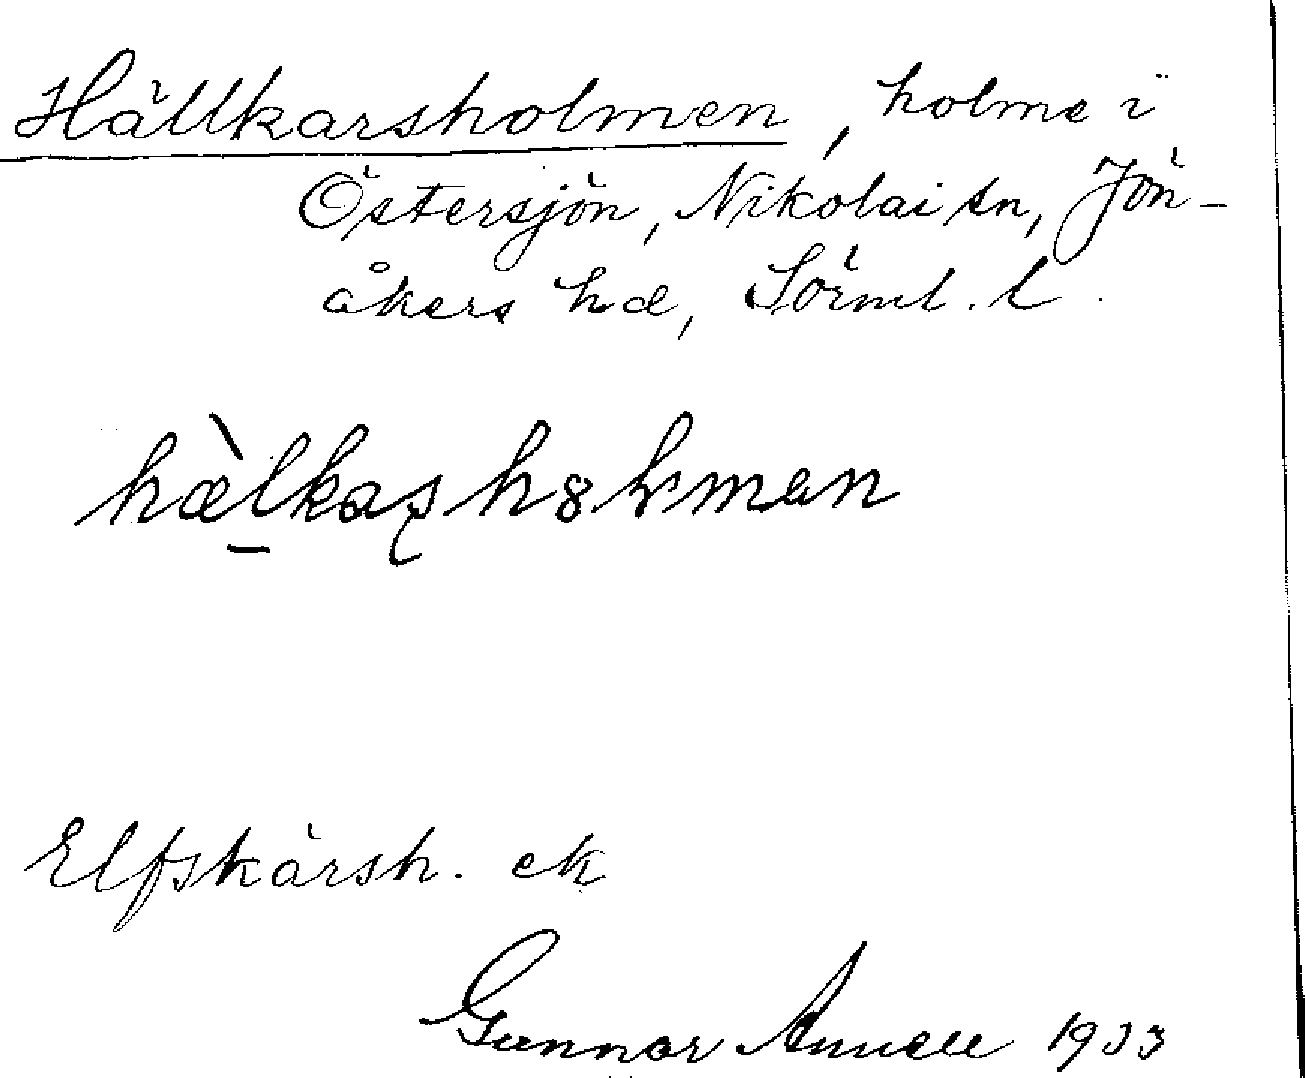 Hällkarsholmen, holme i
Östersjön, Nikolai sn, Jön-
åkers hd, Sörml. l.
hæ̀lkaʂhȣlmən
Elfskärsh. ek
Gunnar Annell 1933